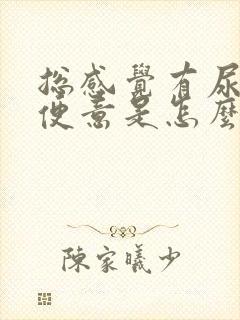 總感覺有尿
便意是怎麼
陳家曦少